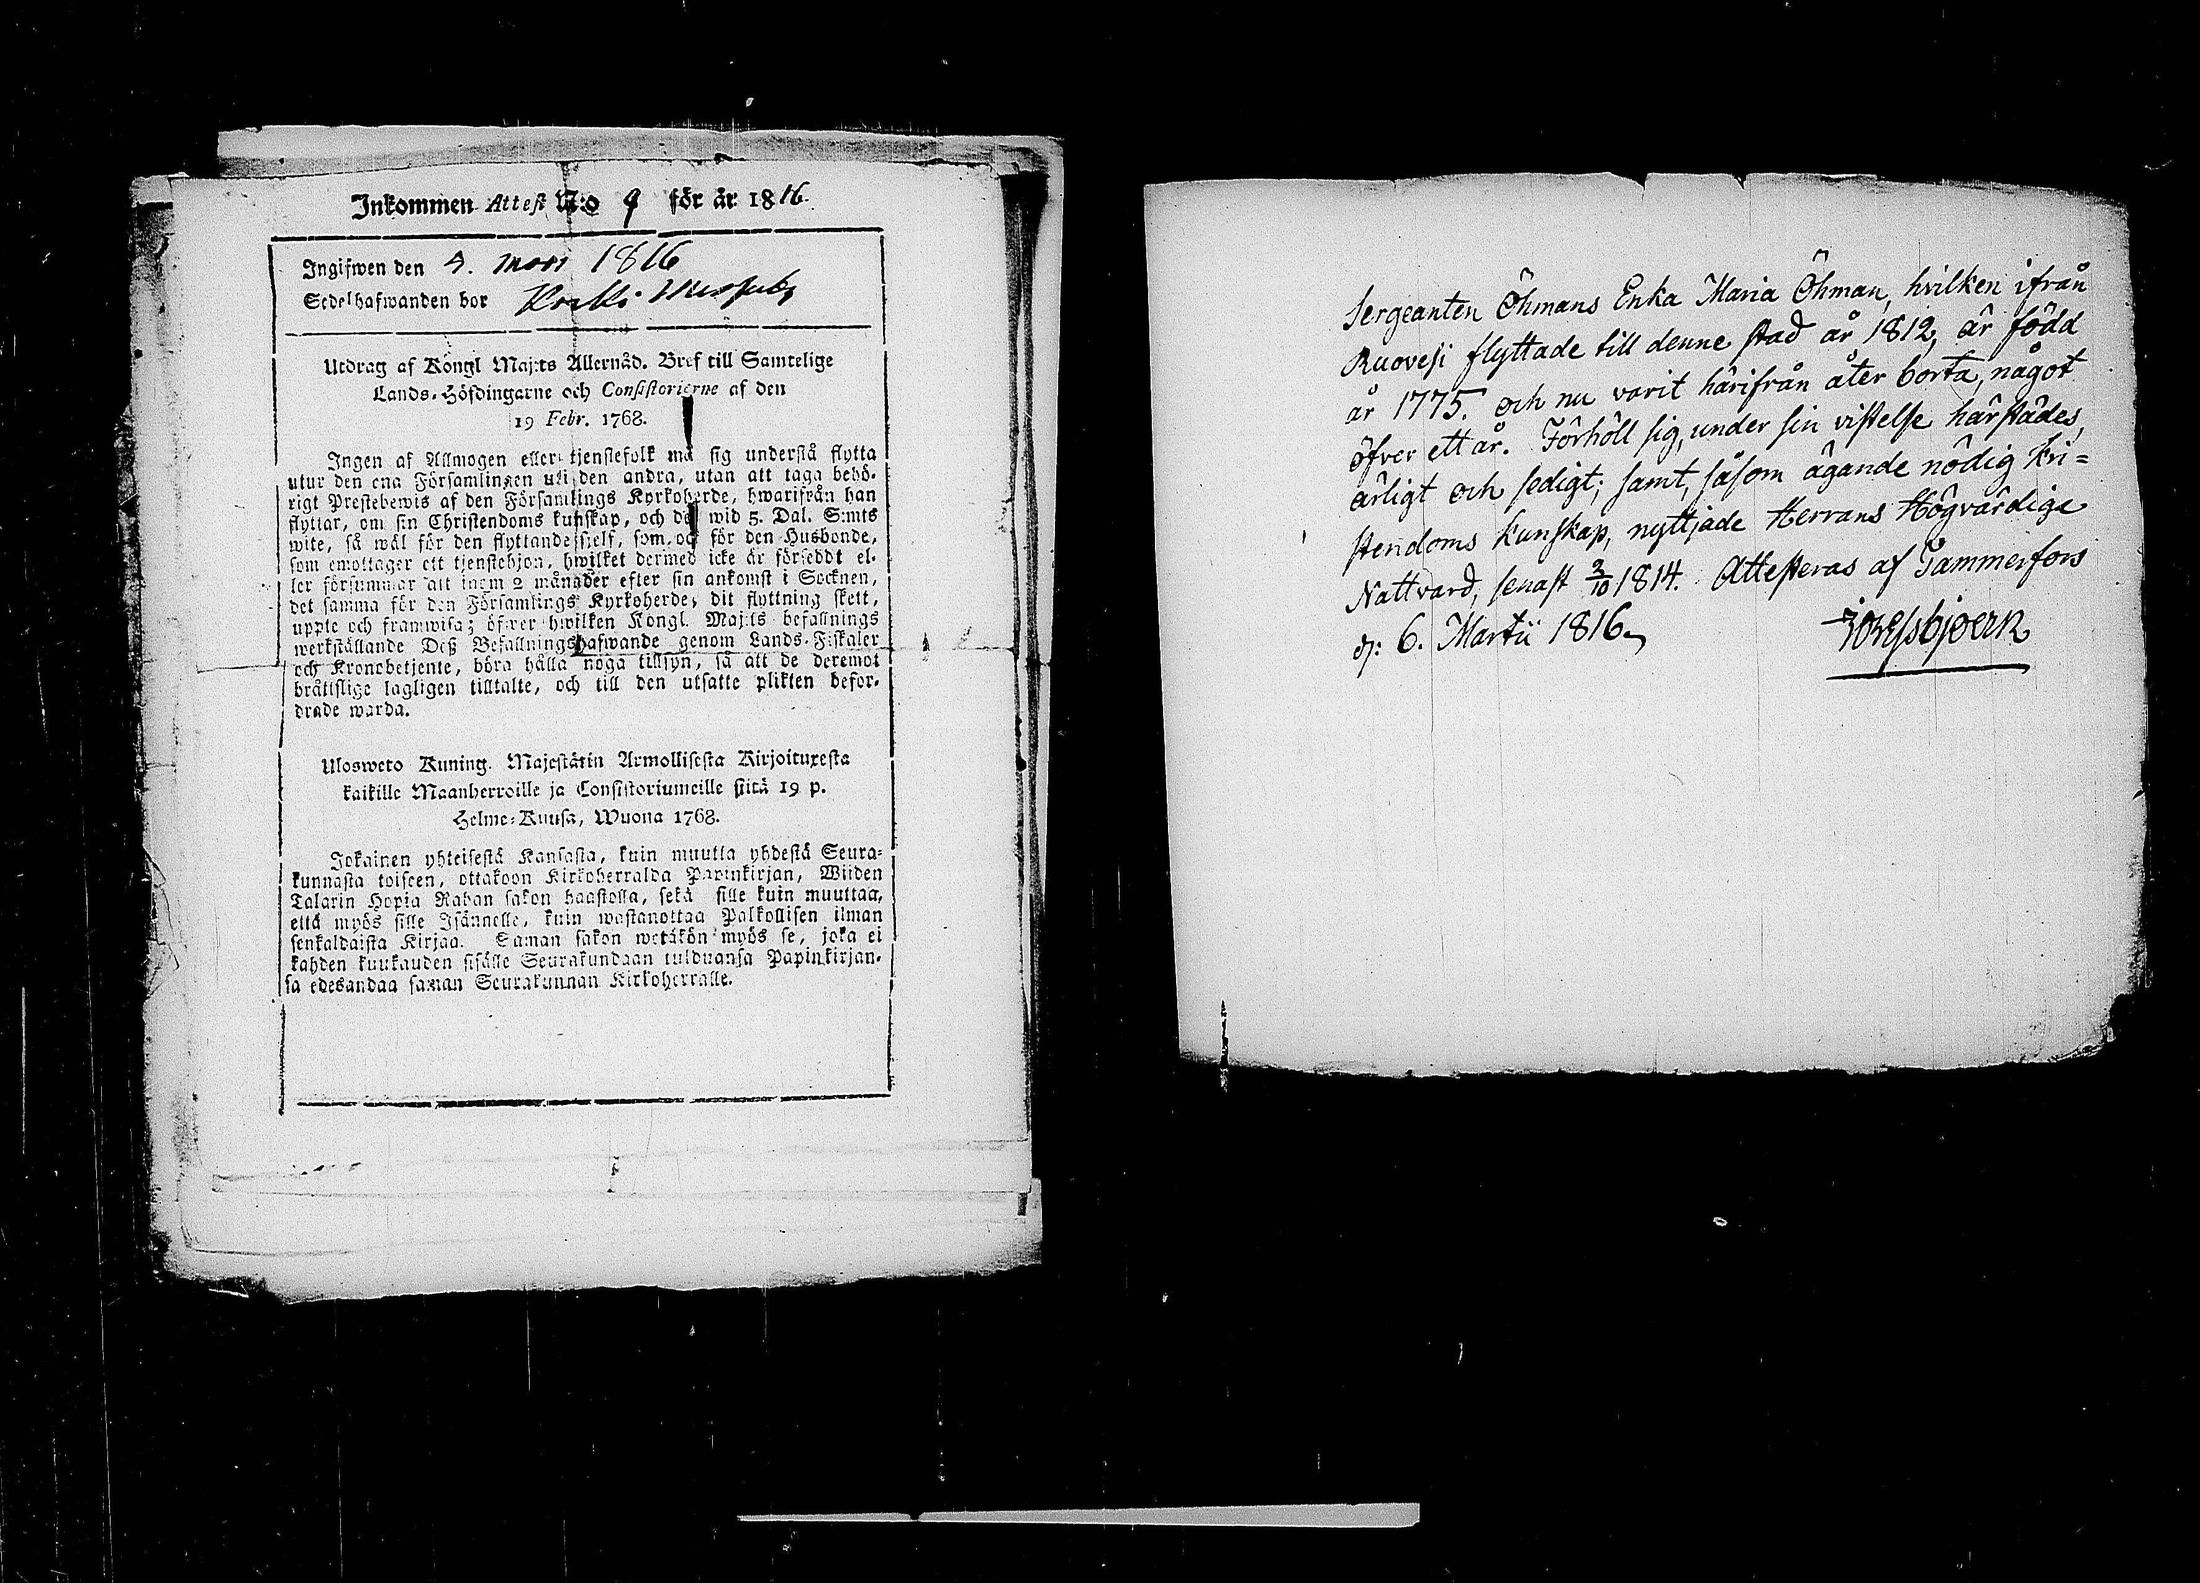 Inkommen Attest N:o 9 för år 1816.
Ingifwen den 9. mars 1816
Sedelhafwanden bor
Utdrag af Kongl Maj:ts Allernåd. Bref till Samtelige
Lands-Höfdingarne och Consistorierne af den
19 Febr. 1768.
Ingen af Allmogen eller tjenstefolk må sig understå flytta
utur den ena Församlingen uti den andra, utan att taga behö-
rigt Prestebewis af den Församlings Kyrkoherde, hwarifrån han
flyttar, om sin Christendoms kunskap, och det wid 5. Dal. S:mts
wite, så wäl för den flyttande sjelf, som ock för den Husbonde,
som emottager ett tjenstehjon, hwilket dermed icke är försedt el-
ler försummar att inom 2 månader efter sin ankomst i Socknen,
det samma för den Församlings Kyrkoherde, dit flyttning skett,
uppte och framwisa; öfwer hwilken Kongl. Maj:ts befallnings
werkställande Deß Befallningshafwande genom Lands-Fiskaler
och Kronobetjente, böra hålla noga tillsyn, så att de deremot
bråttslige lagligen tilltalte, och till den utsatte plikten befor-
drade warda.
Ulosweto Kuning. Majestätin Armollisesta Kirjoituxesta
kaikille Maanherroille ja Consistoriumeille siitä 19 p.
Helme-Kuusa, Wuona 1768.
Jokainen yhteisestä Kansasta, kuin muutta yhdestä Seura-
kunnasta toiseen, ottakoon Kirkoherralda Papinkirjan, Wiiden
Talarin Hopia Rahan sakon haastolla, sekä sille kuin muuttaa,
että myös sille Isännelle, kuin wastanottaa Palkollisen ilman
senkaldaista Kirjaa. Saman sakon wetäkön myös se, joka ei
kahden kuukauden sisälle Seurakundaan tulduansa Papinkirjan-
sa edesandaa saman Seurakunnan Kirkoherralle.
Sergeanten Öhmans Enka Maria Öhman, hvilken ifrån
Ruovesi flyttade till denne stad år 1812, är född
år 1775. och nu varit härifrån åter borta, något
öfver ett år. Förhöll sig, under sin vistelse härstädes,
ärligt och sedigt; samt, såsom ägande nödig Kri=
stendoms kunskap, nyttjade Herrans Högvärdige
Nattvard, senast 2/10 1814. Attesteras af Tammerfors
d: 6. Martii 1816.